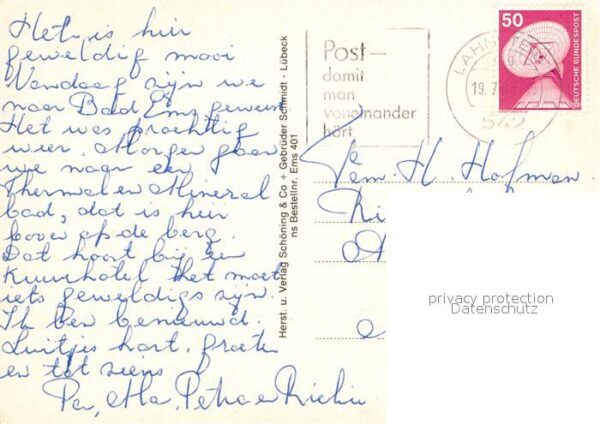 Het is hier
geweldig mooi
Vandaag zijn we
naar Bad Ems geweest
Het was prachtig
weer. Morgen gaan
we naar een
Thermal en Mineral
bad, dat is hier
boven op de berg.
Dat hoort bij een
Kuurhotel Het moet
iets geweldigs zijn.
Ik ben benieuwd.
Luitjes hart. groeten
en tot ziens
Pa, Ma, Petra en
Herst. u. Verlag Schöning & Co + Gebrüder Schmidt - Lübeck
ns Bestellnr. Ems 401
Post-
damit
man
voneinander
hört
LAHN
19.7
542
50
DEUTSCHE BUNDESPOST
Fam. H. Hofman
privacy protection
Datenschutz